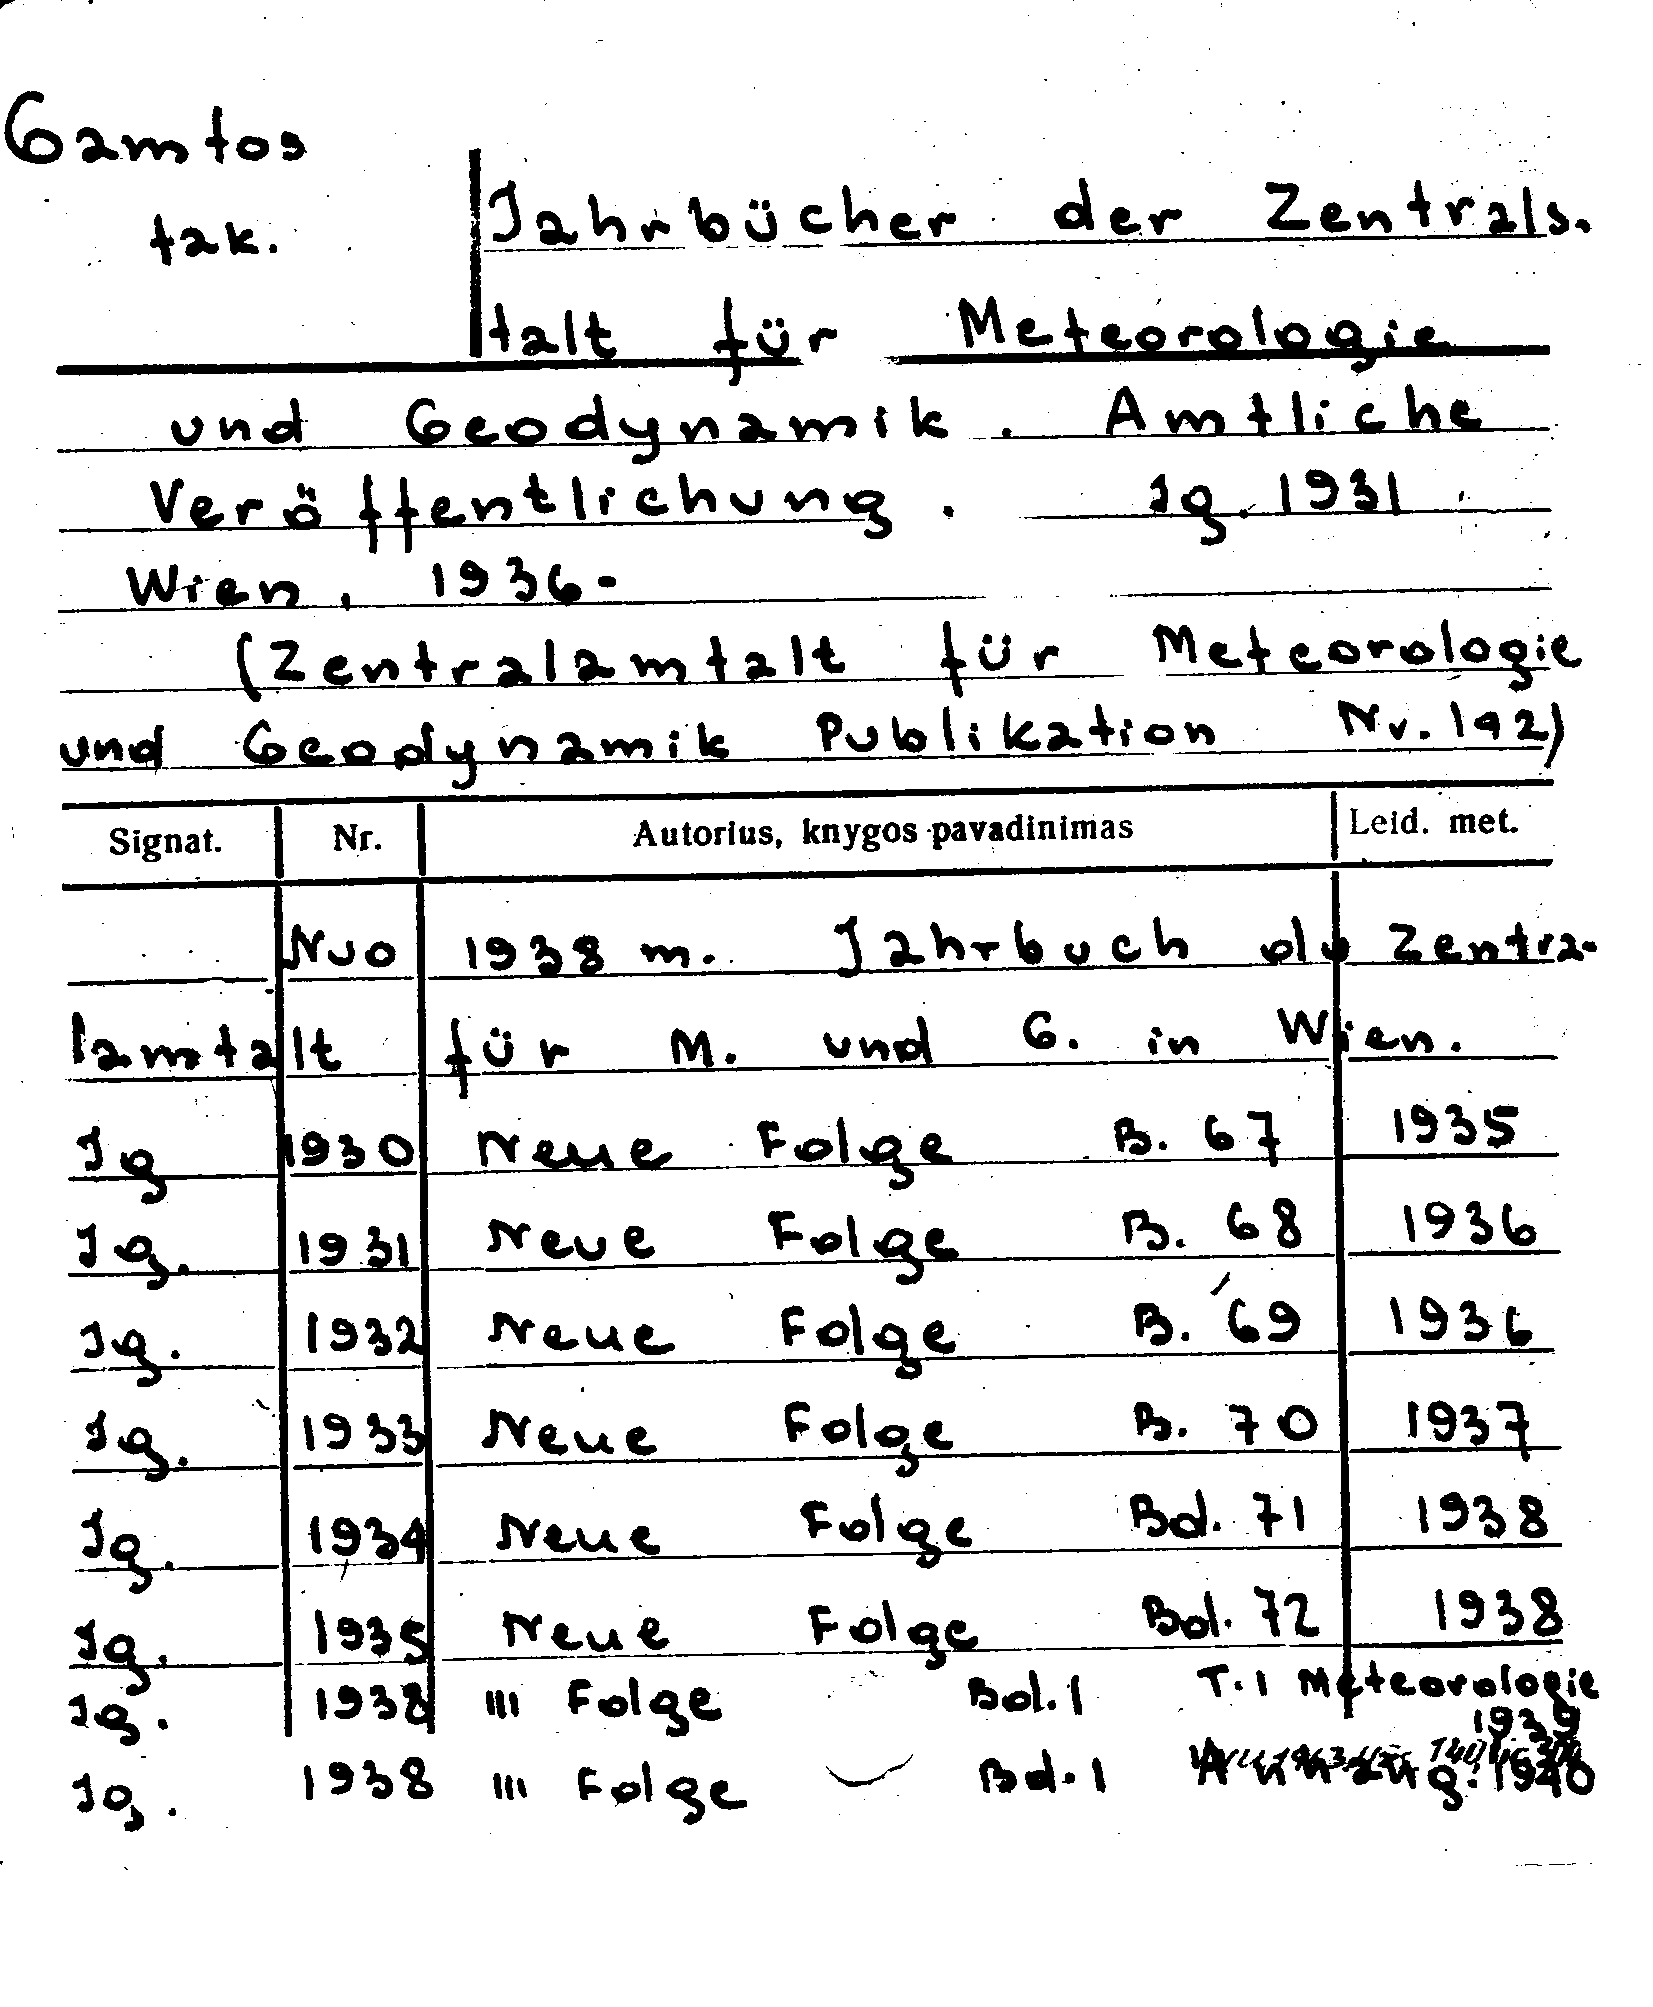 Gamtos
tak.
Jahrbücher der Zentrals.
talt für Meteorologie
und Geodynamik. Amtliche
Veröffentlichung. Jg. 1931
Wien, 1936-
(Zentralamtalt für Meteorologie
und Geodynamik Publikation Nr. 142)
Signat. Nr. Autorius, knygos pavadinimas Leid. met.
Nuo 1938 m. Jahrbuch der Zentra-
lamtalt für M. und G. in Wien.
Jg 1930 Neue Folge B. 67 1935
Jg. 1931 Neue Folge B. 68 1936
Jg. 1932 Neue Folge B. 69 1936
Jg. 1933 Neue Folge B. 70 1937
Jg. 1934 Neue Folge Bd. 71 1938
Jg. 1935 Neue Folge Bd. 72 1938
Jg. 1938 III Folge Bd. 1 T. I Meteorologie
1939
Jg. 1938 III Folge Bd. 1 1940